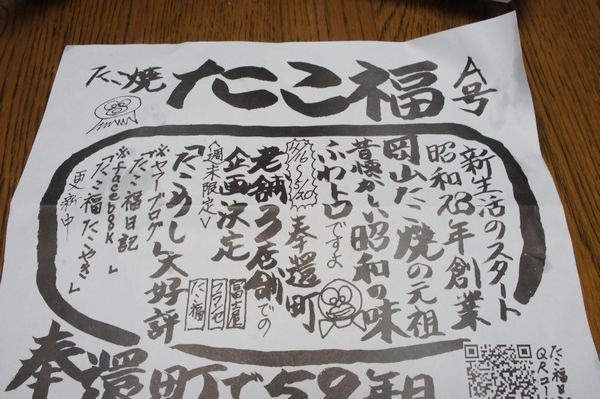 たこ焼 たこ福 A号
新生活のスタート
昭和28年創業
岡山たこ焼の元祖
昔懐かしい昭和の味
ふわトロですよ
奉還町
老舗3店舗での
企画決定
富屋
フランセ
たこ福
<週末限定>
「たこめし」大好評
※ヤフーブログ
「たこ福日記」
※facebook
「たこ福たこやき」
更新中
たこ福日
QRコー
奉還町で59年目